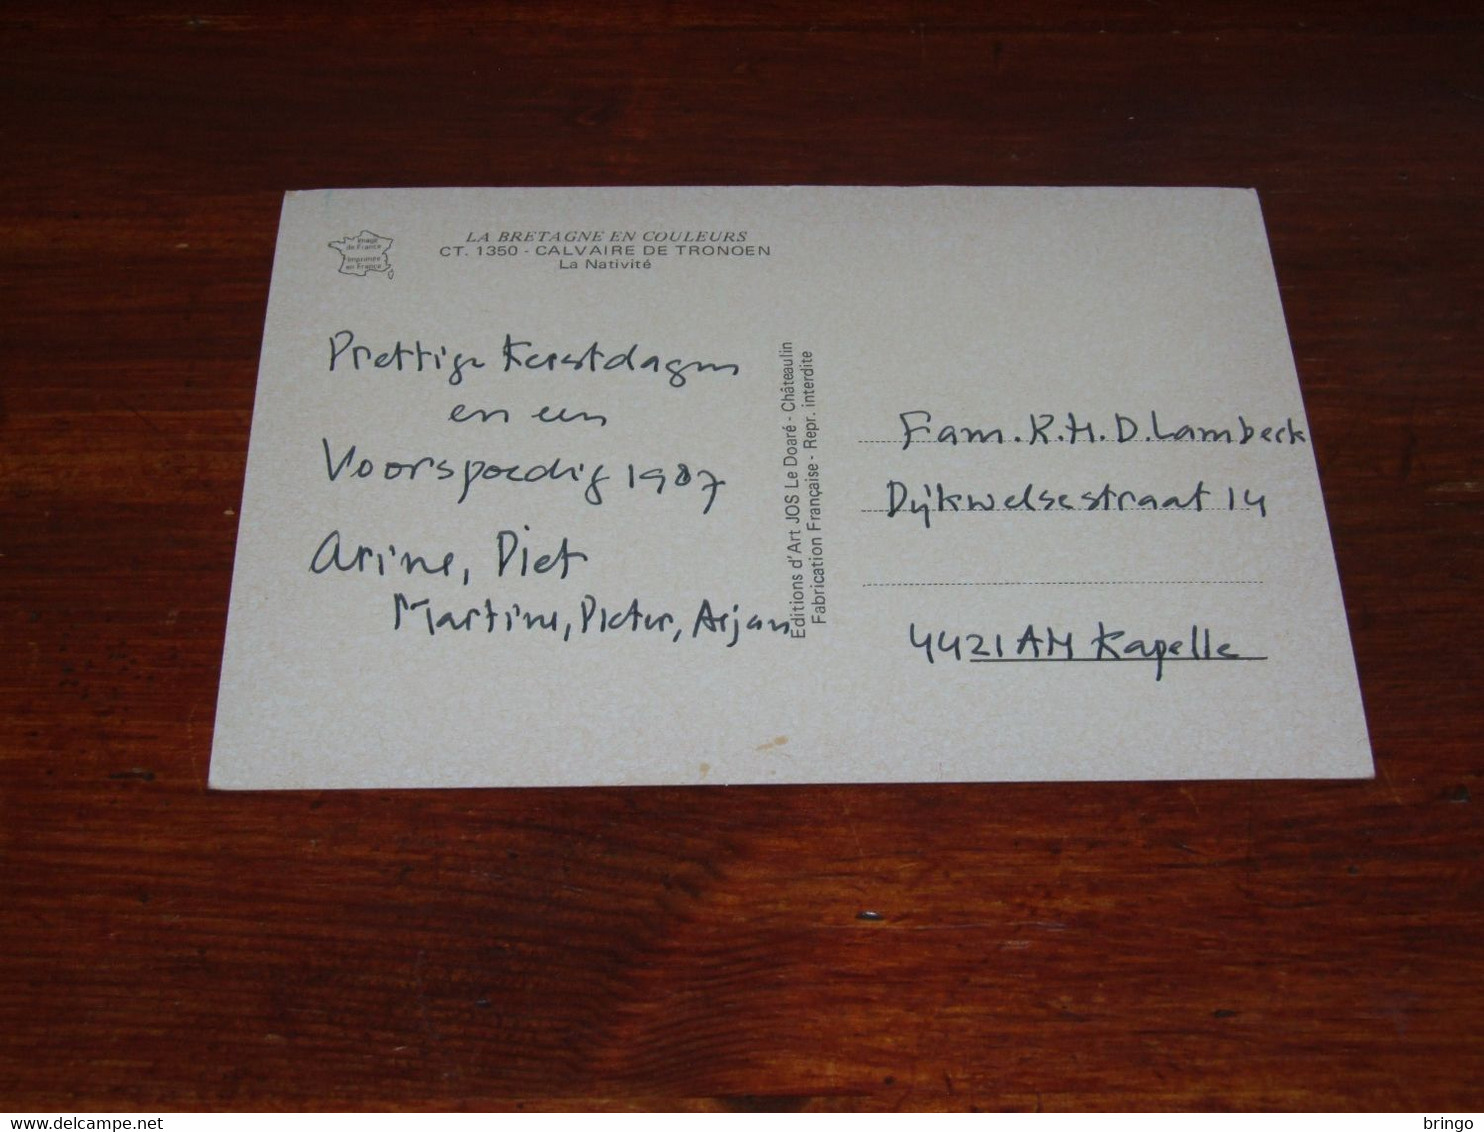 Image
de France
Imprimée
en France
LA BRETAGNE EN COULEURS
CT. 1350 - CALVAIRE DE TRONOEN
La Nativité
Prettige Kerstdagen
en een
Voorspoedig 1987
Arine, Piet
Martine, Pieter, Arjan
Editions d'Art JOS Le Doaré - Châteaulin
Fabrication Française - Repr. interdite
Fam. R.H.D. Lambeck
Dijkwelsestraat 14
4421 AM Kapelle
delcampe.net
bringo